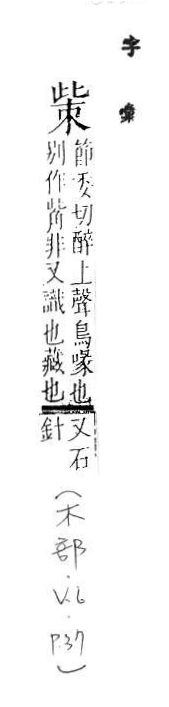 字彙
㭰
節委切醉上聲鳥喙也又石
別作觜非又識也藏也針
(木部.V.6.P.37)